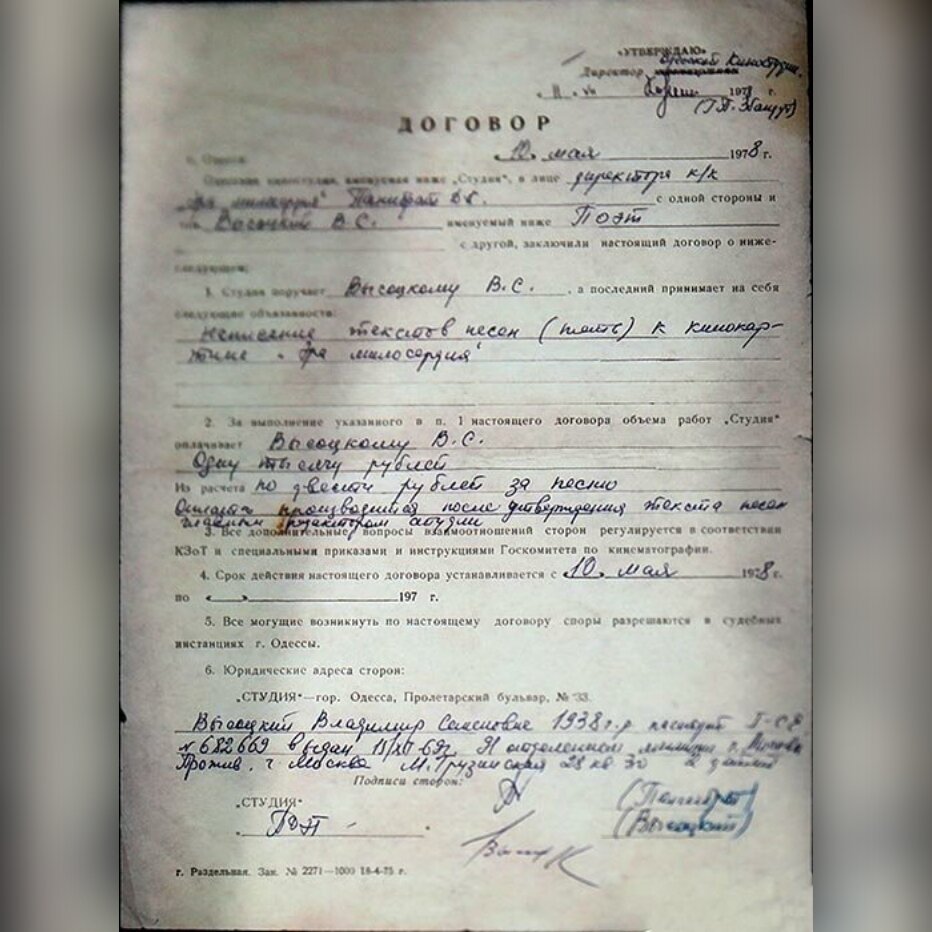 «УТВЕРЖДАЮ»
Директор Одесской Киностудии
197 г.
(Г.П. Збандут)
ДОГОВОР
г. Одесса 10 мая 1978 г.
Одесская киностудия, именуемая ниже „Студия“, в лице директора к/к
„Эра милосердия“ Панибрат с одной стороны и
Высоцкий В.С. именуемый ниже Поэт
с другой, заключили настоящий договор о ниже-
следующем:
1. Студия поручает Высоцкому В.С., а последний принимает на себя
следующие обязанности:
Написание текстов песен (пять) к кинокар-
тине „Эра милосердия“
2. За выполнение указанного в п. 1 настоящего договора объема работ „Студия“
оплачивает Высоцкому В.С.
Одну тысячу рублей
Из расчета по двести рублей за песню
Оплата производится после утверждения текста песен
главным редактором студии
3. Все дополнительные вопросы взаимоотношений сторон регулируется в соответствии
КЗоТ и специальными приказами и инструкциями Госкомитета по кинематографии.
4. Срок действия настоящего договора устанавливается с 10 мая 1978 г.
по « » 197 г.
5. Все могущие возникнуть по настоящему договору споры разрешаются в судебных
инстанциях г. Одессы.
6. Юридические адреса сторон:
„СТУДИЯ“—гор. Одесса, Пролетарский бульвар, № 33.
Высоцкий Владимир Семенович 1938 г.р. паспорт
№ 682669 выдан отделением милиции г. Москва
Прожив. г. Москва М. Грузинская 28 кв 30
Подписи сторон:
„СТУДИЯ“ (Панибрат)
Поэт (Высоцкий)
г. Раздельная. Зак. № 2271—1000 18-4-75 г.